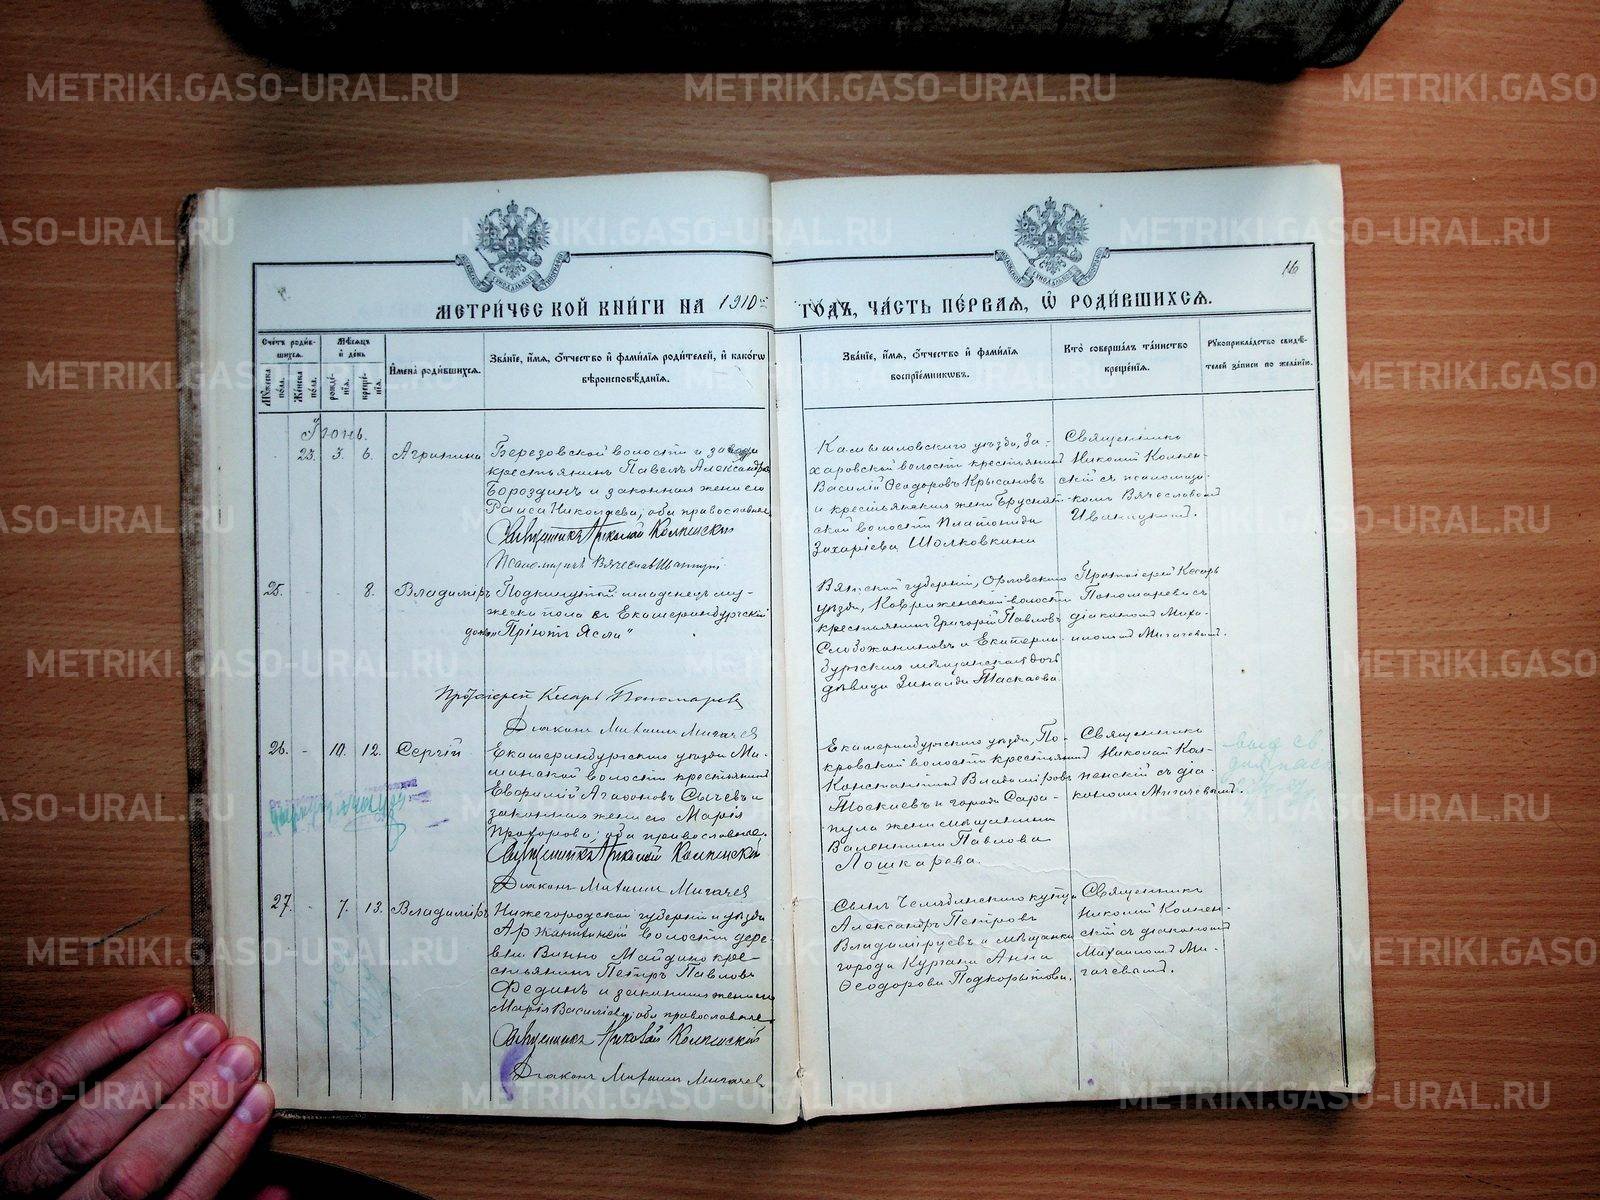 METRIKI.GASO-URAL.RU
16
МЕТРИ́ЧЕСКОЙ КНИ́ГИ НА 1910й ГО́ДЪ, ЧА́СТЬ ПЕ́РВАЯ, Ѽ РОДИ́ВШИХСЯ.
Сче́тъ роди́в-
шихся.
Му́жеска по́ла.
Же́нска по́ла.
Мѣ́сяцъ
и҆ де́нь
рожде́-
нїѧ.
креще́-
нїѧ.
И҆мена̀ роди́вшихсѧ.
Зва́нїе, и҆́мѧ, ѻ҆́тчество и҆ фами́лїѧ роди́телей, и҆ како́гѡ
вѣроисповѣ́данїѧ.
Зва́нїе, и҆́мѧ, ѻ҆́тчество и҆ фами́лїѧ
воспрїе́мникѡвъ.
Кто̀ соверша́лъ та́инство
креще́нїѧ.
Рꙋкоприкла́дство свидѣ́-
телей за́писи по жела́нїю.
Iюнь.
23. 3. 6. Агрипина
Березовской волости и завода
крестьянинъ Павелъ Александровъ
Бороздинъ и законная жена его
Раиса Николаева, оба православные
Священникъ Николай Колпенский
Псаломщикъ Вячеславъ Иваницкий
Камышловскаго уѣзда, За-
харовской волости крестьянинъ
Василій Ѳеодоровъ Крысановъ
и крестьянская жена Бруснят-
ской волости Платонида
Захаріева Шолковкина
Священникъ
Николай Колпен-
скій съ псаломщи-
комъ Вячеславомъ
Иваницкимъ.
25. - - 8. Владиміръ
Подкинутый младенецъ му-
жеска пола въ Екатеринбургскій
домъ "Пріютъ Ясли"
Протоіерей Кесарь Пономаревъ
Діаконъ Михаилъ Мигачев
Вятской губерніи, Орловскаго
уѣзда, Ковриженской волости
крестьянинъ Григорій Павловъ
Слобожаниновъ и Екатерин-
бургская мѣщанская дочь
дѣвица Зинаида Таскаева.
Протоіерей Кесарь
Пономаревъ съ
діакономъ Миха-
иломъ Мигачевымъ.
26. - 10. 12. Сергій
Екатеринбургскаго уѣзда Ма-
минской волости крестьянинъ
Евфимій Агафоновъ Сычевъ и
законная жена его Марія
Прохорова, оба православные.
Священникъ Николай Колпенскій
Діаконъ Михаилъ Мигачев
Екатеринбургскаго уѣзда, По-
кровской волости крестьянинъ
Константинъ Владиміровъ
Таскаевъ и города Сара-
пула жена мѣщанина
Валентина Павлова
Лошкарева.
Священникъ
Николай Кол-
пенскій съ діа-
кономъ Мигачевымъ.
27. - 7. 13. Владиміръ
Нижегородской губерніи и уѣзда
волости дере-
вни Винно Майдана кре-
стьянинъ Петръ Павловъ
Фединъ и законная жена его
Марія Васильева, оба православные.
Священникъ Николай Колпенскій
Діаконъ Михаилъ Мигачев
Сынъ Челябинскаго купца
Александръ Петровъ
Владиміровъ и мѣщанка
города Кургана Анна
Ѳеодорова Подкорытова.
Священникъ
Николай Колпен-
скій съ діакономъ
Михаиломъ Ми-
гачевымъ.